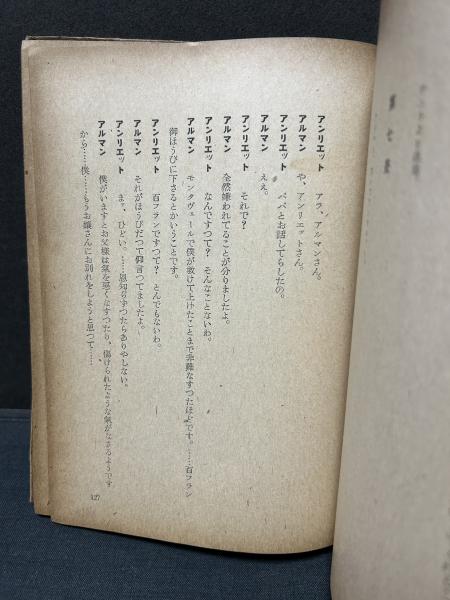 第七景
アンリエット　アラ、アルマンさん。
アルマン　や、アンリエットさん。
アンリエット　パパとお話してらしたの。
アルマン　ええ。
アンリエット　それで？
アルマン　全然嫌われてることが分りましたよ。
アンリエット　なんですつて？　そんなことないわ。
アルマン　モンタヴェールで僕が救けて上げたことまで非難なすつたほどです。……百フラン
御ほうびに下さるとかいうことです。
アンリエット　百フランですつて？　とんでもないわ。
アルマン　それがほうびだつて仰言つてましたよ。
アンリエット　まァ、ひどい。……恩知らずつたらありやしない。
アルマン　僕がいますとお父様は氣を惡くなすつたり、傷けられたような氣がなさるようです
から……僕……もうお孃さんにお別れをしようと思つて……
127